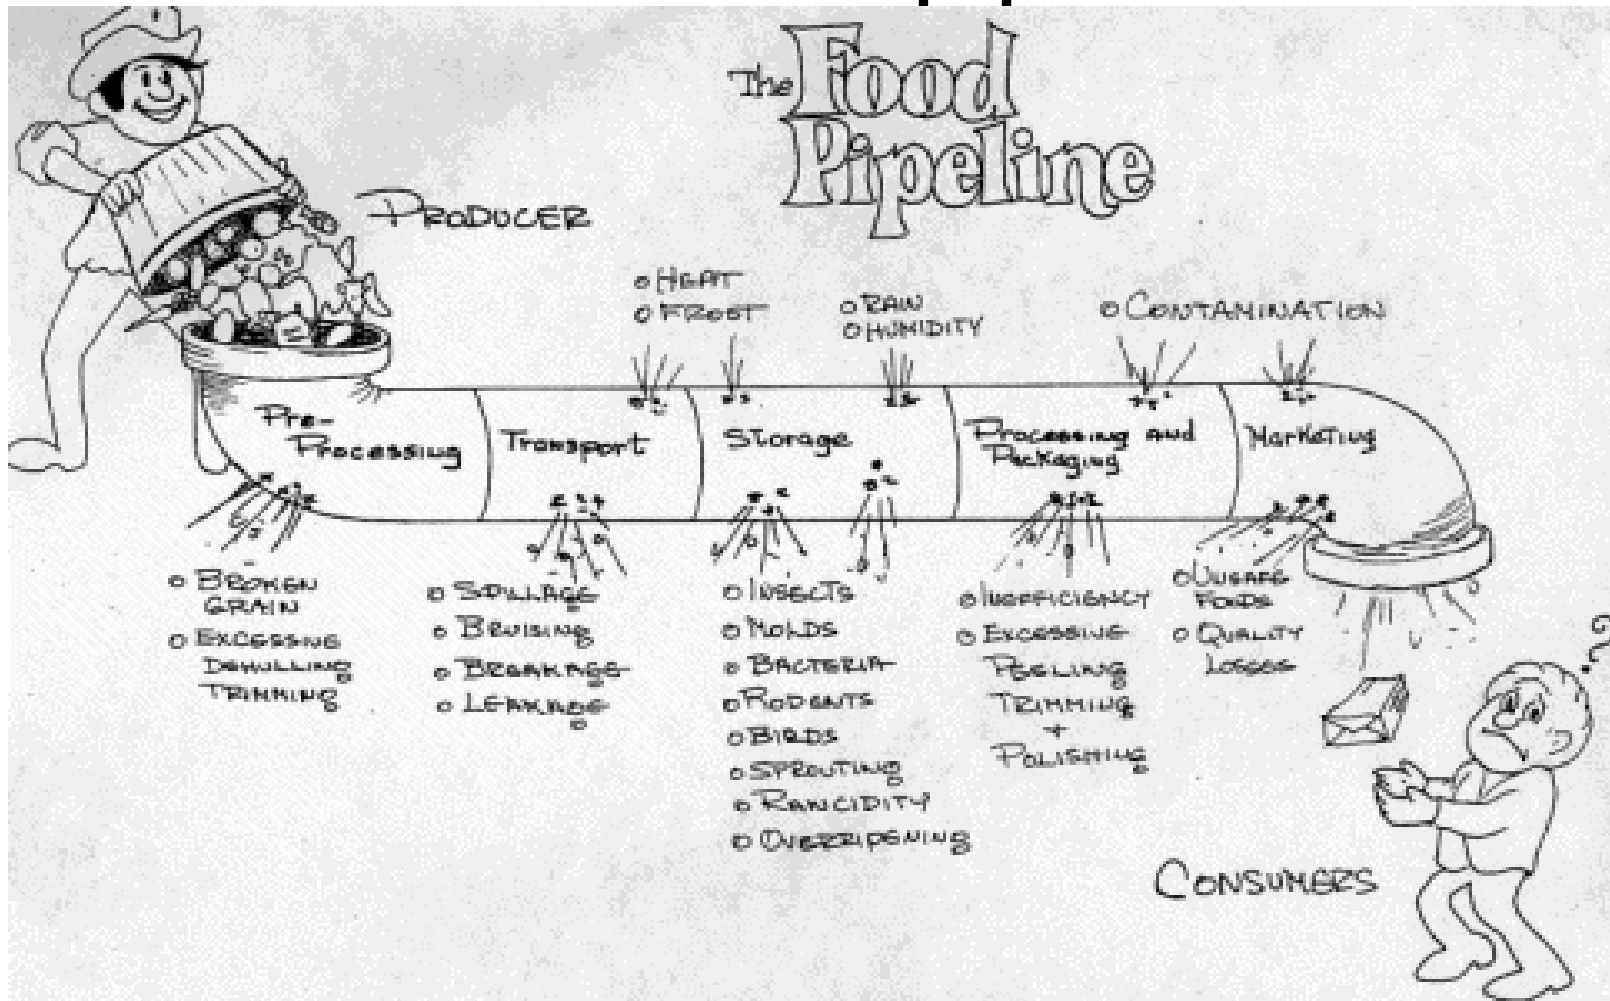 The Food
Pipeline
PRODUCER
o HEAT
o FROST
o RAIN
o HUMIDITY
o CONTAMINATION
Pre-
Processing
Transport
Storage
Processing and
Packaging
Marketing
o BROKEN
GRAIN
o EXCESSIVE
DEHULLING
TRIMMING
o SPILLAGE
o BRUISING
o BREAKAGE
o LEAKAGE
o INSECTS
o MOLDS
o BACTERIA
o RODENTS
o BIRDS
o SPROUTING
o RANCIDITY
o OVERRIPENING
o INEFFICIENCY
o EXCESSIVE
PEELING
TRIMMING
+
POLISHING
o UNSAFE
FOODS
o QUALITY
LOSSES
CONSUMERS
?